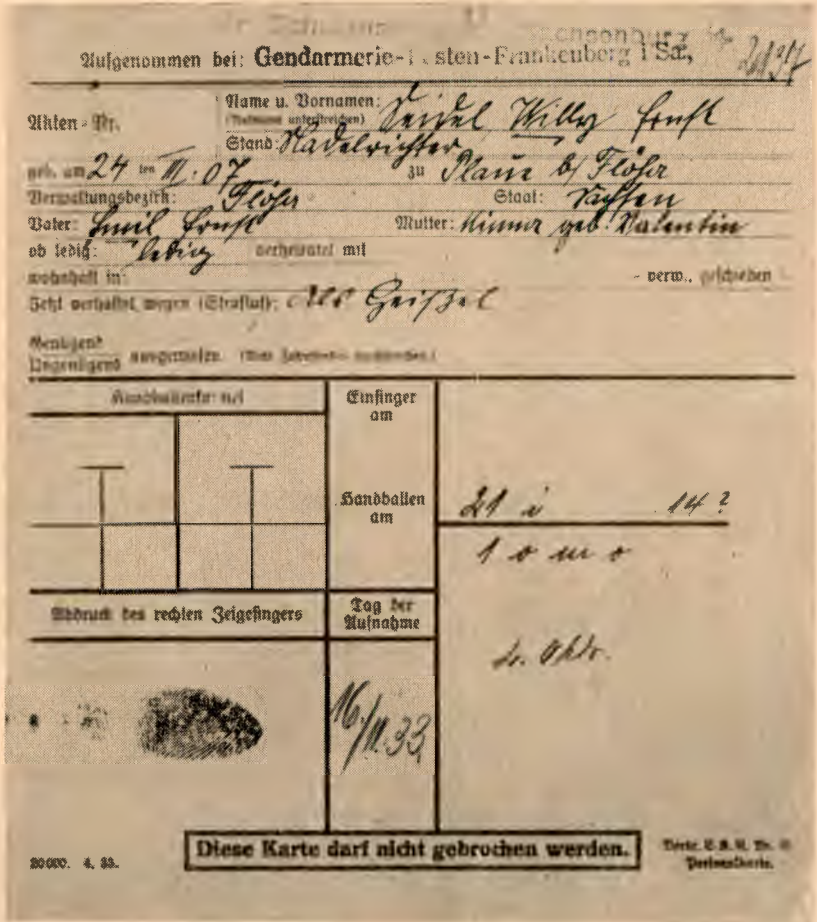 Sachsenburg
Aufgenommen bei: Gendarmerie-Posten-Frankenberg i Sa.,
Akten-Nr.
Name u. Vornamen: Seidel Willy Ernst
(Rufname unterstreichen)
Stand: Nadelrichter
geb. am 24 ten III. 07 zu Plaue b/ Flöha
Verwaltungsbezirk: Flöha Staat: Sachsen
Vater: Emil Ernst Mutter: Minna geb. Valentin
ob ledig: ledig verheiratet mit
wohnhaft in: verw., geschieden
Jetzt verhaftet wegen (Straftat): Als Geißel
Genügend
Ungenügend ausgewiesen. (Nicht Zutreffendes durchstreichen.)
Einfinger
am
Handballen
am
21 i 14 ?
1 o m o
Abdruck des rechten Zeigefingers
Tag der
Aufnahme
16/
33
Diese Karte darf nicht gebrochen werden.
20000. 4. 33.